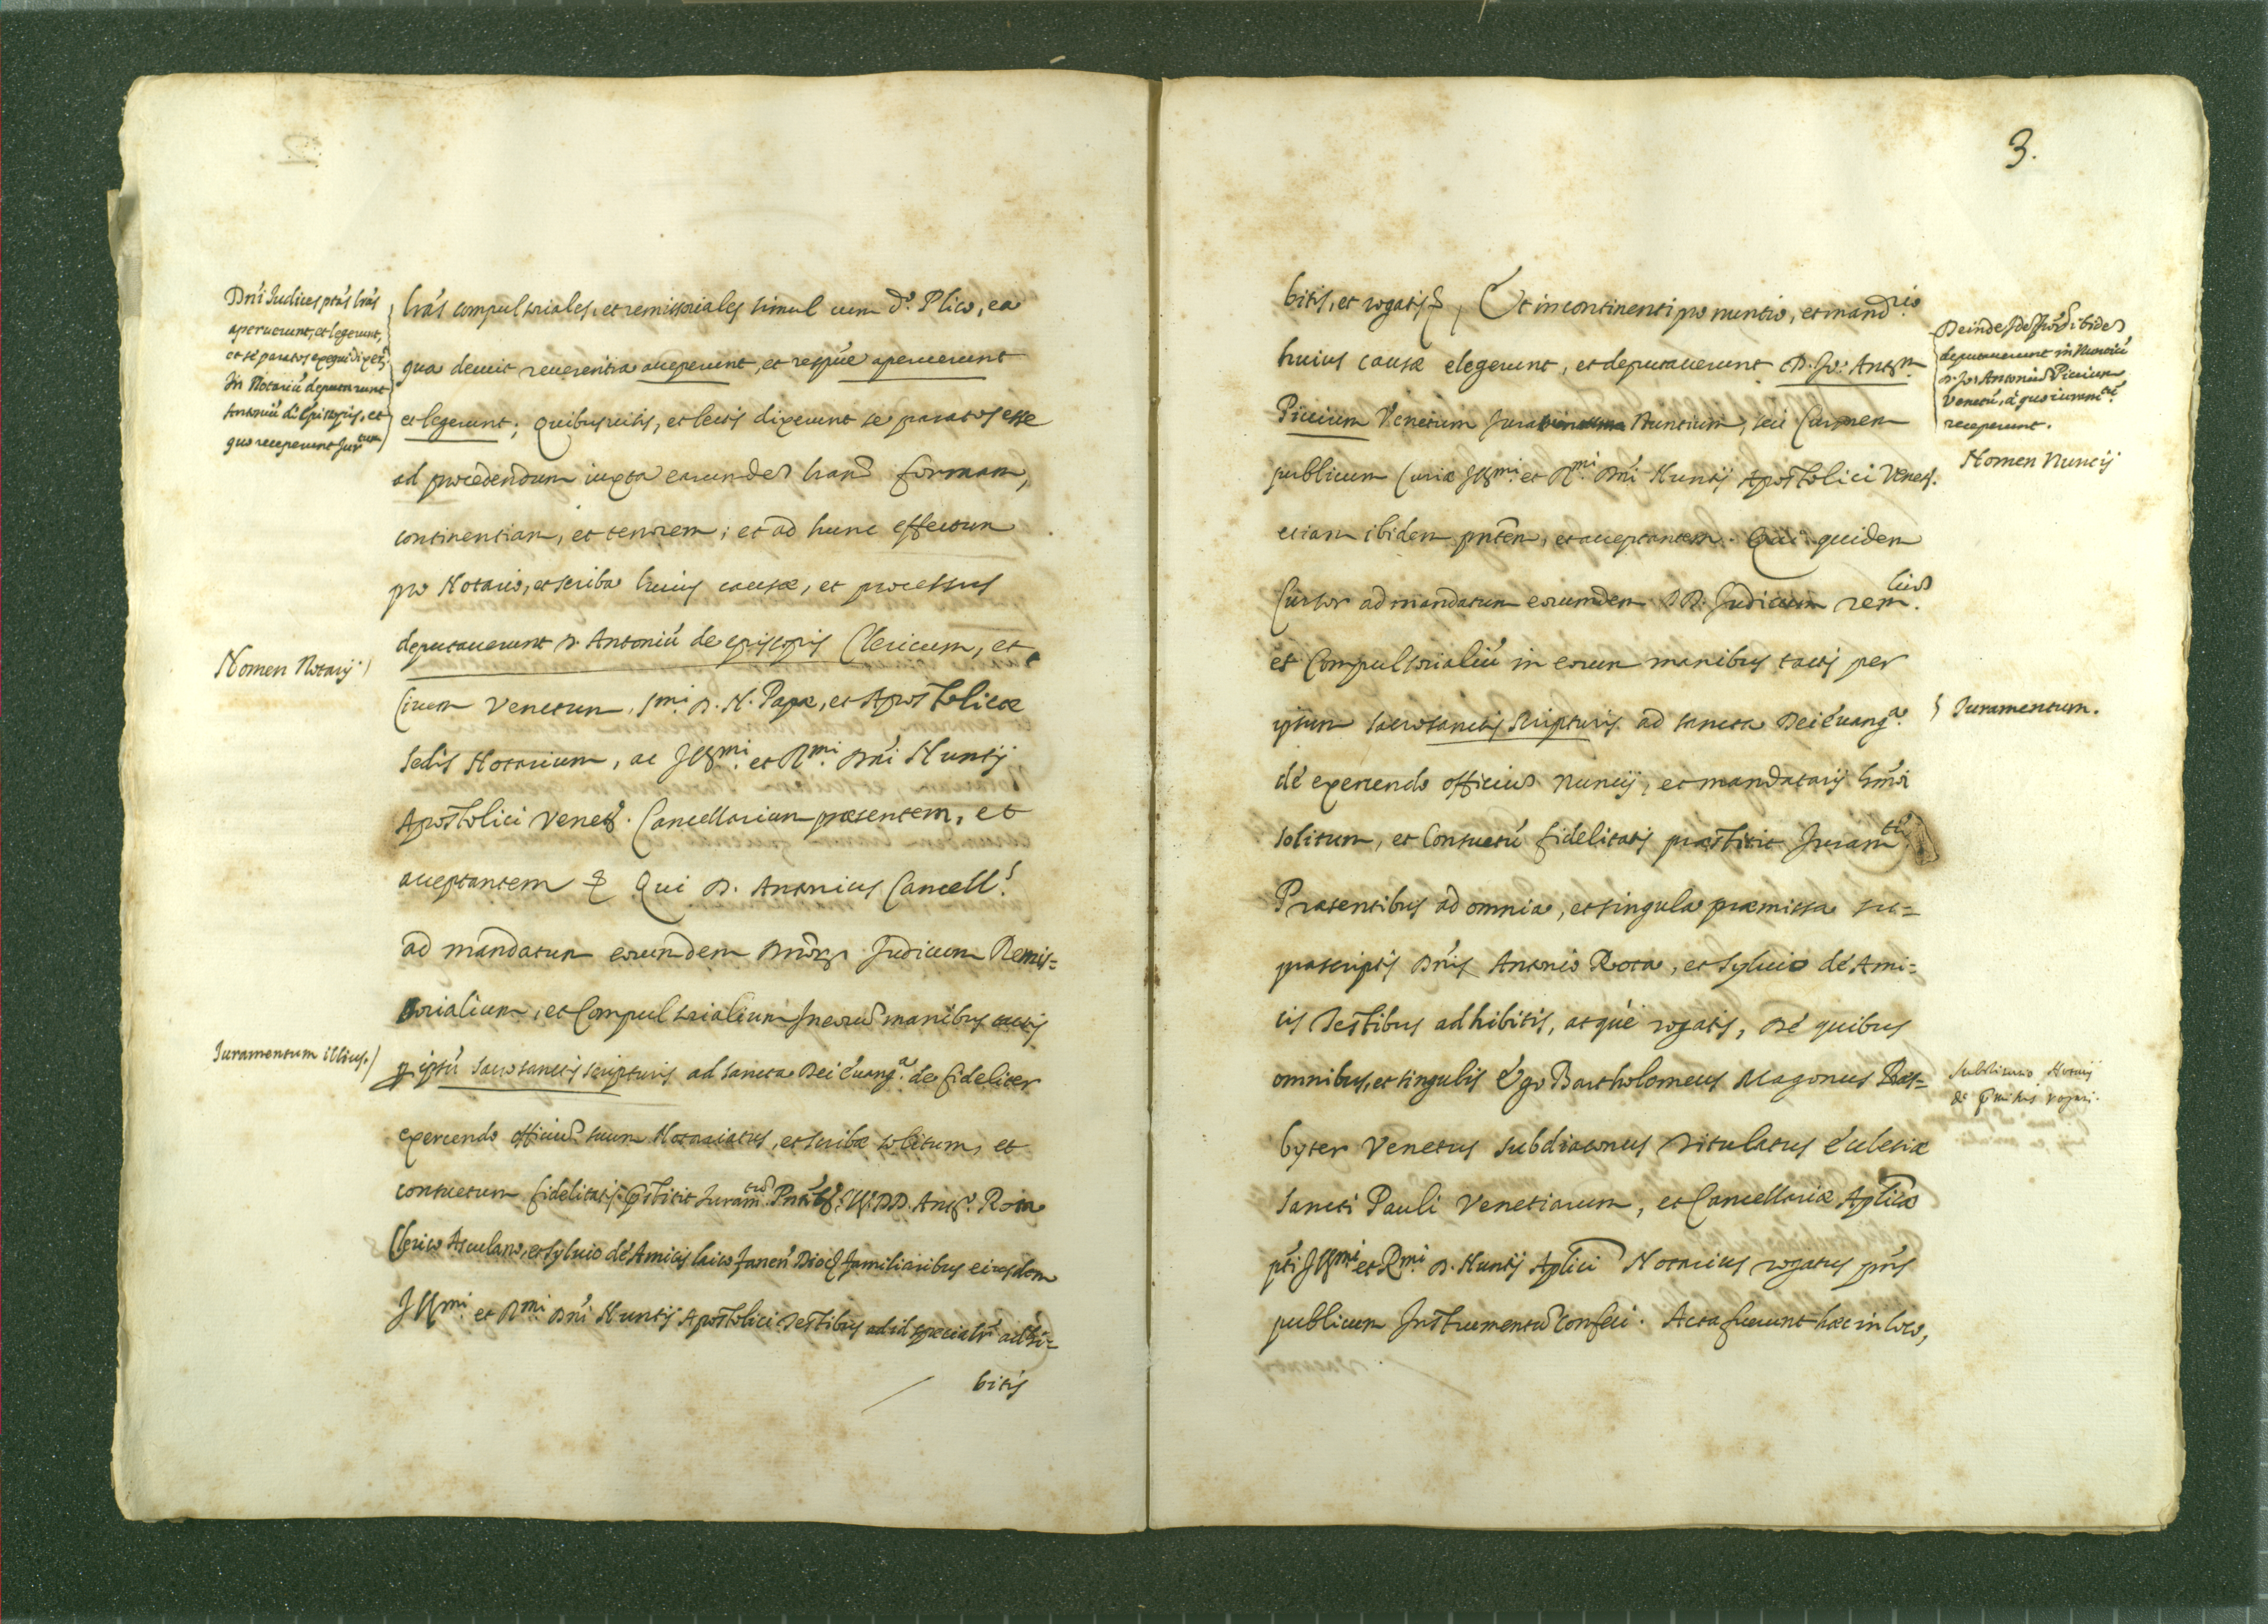 Dñi Judices ptas lras
aperuerunt, et legerunt,
et se paratos exequi dixerũt
In Notariũ deputarunt
Antoniũ de Episcopis, et
quo receperunt Jur.tum
lras compulsoriales, et remissoriales simul cum d.º Plico, ea
qua decuit reuerentia acceperunt, et respüe aperuerunt
et legerunt; quibus uisis, et lectis dixerunt se paratos esse
ad procedendum iuxta earundẽ lrarũ formam,
continentiam, et tenorem; et ad hunc effectum
pro Notario, et scriba huius causæ, et processus
Nomen Notarij
deputauerunt D. Antoniũ de episcopis Clericum, et
Ciuem Venetum, S.mi D. N. Papæ, et Apostolicæ
Sedis Notarium, ac Ill.mi et R.mi Dñi Nuntij
Apostolici Venet. Cancellarium præsentem, et
acceptantem & Qui D. Antonius Cancell.s
ad mandatum eorumdem Dñorũ Judicum Remis=
sorialium, et Compulsorialium In eorũ manibus tactis
Juramentum illius.
p ipsũ sacrosanctis scripturis ad sancta Dei euang.a de fideliter
exercendo officiũ suum Notariatus, et scribæ solitum, et
consuetum fidelitatis pstitit Juram.tũ Pñtibs. Ill. DD. Ant.º Rota
Clerico Asculano, et Syluio de Amicis laico fanen Dioc. familiaribus eiusdem
Ill.mi et R.mi Dñi Nuntij Apostolici Testibus ad id specialr adhi=
bitis
3.
bitis, et rogatis &, Et incontinenti pro nuntio, et mand.rio
huius causæ elegerunt, et deputauerunt D. Jo: Ant.m
Picium Venetum Nuntium, seu Cursorem
publicum Curiæ Ill.mi et R.mi Dñi Nuntij Apostolici Venet.
etiam ibidem pñtem, et acceptantem. Qui quidem
Cursor ad mandatum eorumdem DD. Judicum rem.liũ
et Compulsorialiũ in eorum manibus tactis per
ipsum sacrosanctis scripturis ad sancta Dei euang.a
de exercendo officiũ nuncij, et mandatarij hmõi
solitum, et Consuetũ fidelitatis præstitit Juram.tũ
Præsentibus ad omnia, et singula præmissa su=
prascriptis Dñis Antonio Rota, et Syluio de Ami=
cis Testibus adhibitis, atque rogatis, De quibus
omnibus, et singulis Ego Bartholomeus Magonus Præs=
byter Venetus subdiaconus titulatus Ecclesiæ
Sancti Pauli Venetiarum, et Cancellariæ Aplicæ
pti Ill.mi et R.mi D. Nuntij Aplici Notarius rogatus pñs
publicum Instrumentũ confeci. Acta fuerunt hæc in loco,
Deinde ibidẽ
deputauerunt in Nunciũ
D. Jo: Antoniũ Picium
Venetũ, a quo iuram.tũ
receperunt.
Nomen Nuncij
Juramentum.
Notarij
rogati.